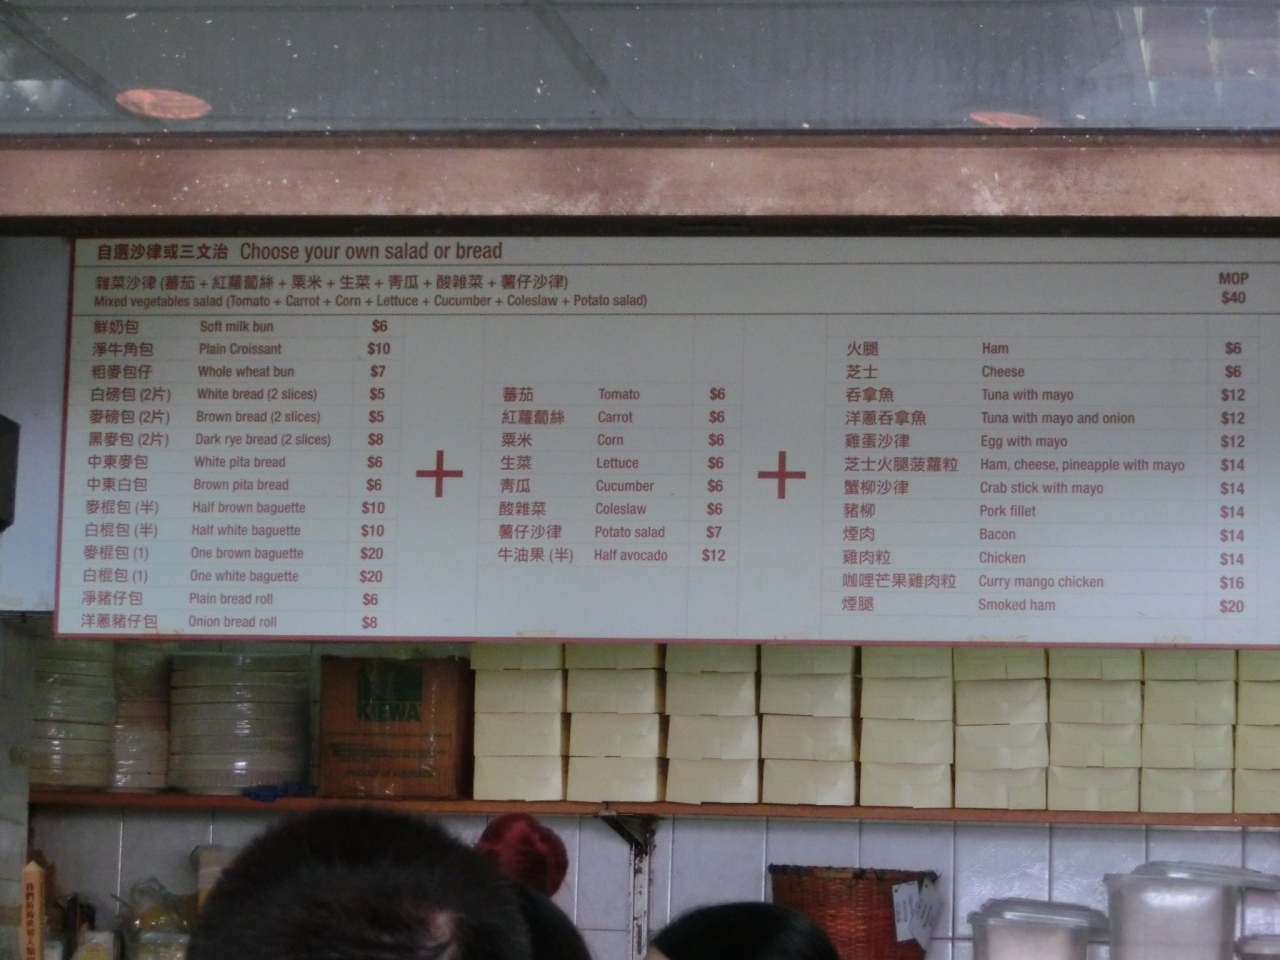 自選沙律或三文治 Choose your own salad or bread
雜菜沙律 (蕃茄 + 紅蘿蔔絲 + 粟米 + 生菜 + 青瓜 + 酸雜菜 + 薯仔沙律)
Mixed vegetables salad (Tomato + Carrot + Corn + Lettuce + Cucumber + Coleslaw + Potato salad)
MOP
$40
鮮奶包 Soft milk bun $6
淨牛角包 Plain Croissant $10
粗麥包仔 Whole wheat bun $7
白磅包 (2片) White bread (2 slices) $5
麥磅包 (2片) Brown bread (2 slices) $5
黑麥包 (2片) Dark rye bread (2 slices) $8
中東麥包 White pita bread $6
中東白包 Brown pita bread $6
麥棍包 (半) Half brown baguette $10
白棍包 (半) Half white baguette $10
麥棍包 (1) One brown baguette $20
白棍包 (1) One white baguette $20
凈豬仔包 Plain bread roll $6
洋蔥豬仔包 Onion bread roll $8
+
蕃茄 Tomato $6
紅蘿蔔絲 Carrot $6
粟米 Corn $6
生菜 Lettuce $6
青瓜 Cucumber $6
酸雜菜 Coleslaw $6
薯仔沙律 Potato salad $7
牛油果 (半) Half avocado $12
+
火腿 Ham $6
芝士 Cheese $6
吞拿魚 Tuna with mayo $12
洋蔥吞拿魚 Tuna with mayo and onion $12
雞蛋沙律 Egg with mayo $12
芝士火腿菠蘿粒 Ham, cheese, pineapple with mayo $14
蟹柳沙律 Crab stick with mayo $14
豬柳 Pork fillet $14
煙肉 Bacon $14
雞肉粒 Chicken $14
咖哩芒果雞肉粒 Curry mango chicken $16
煙腿 Smoked ham $20